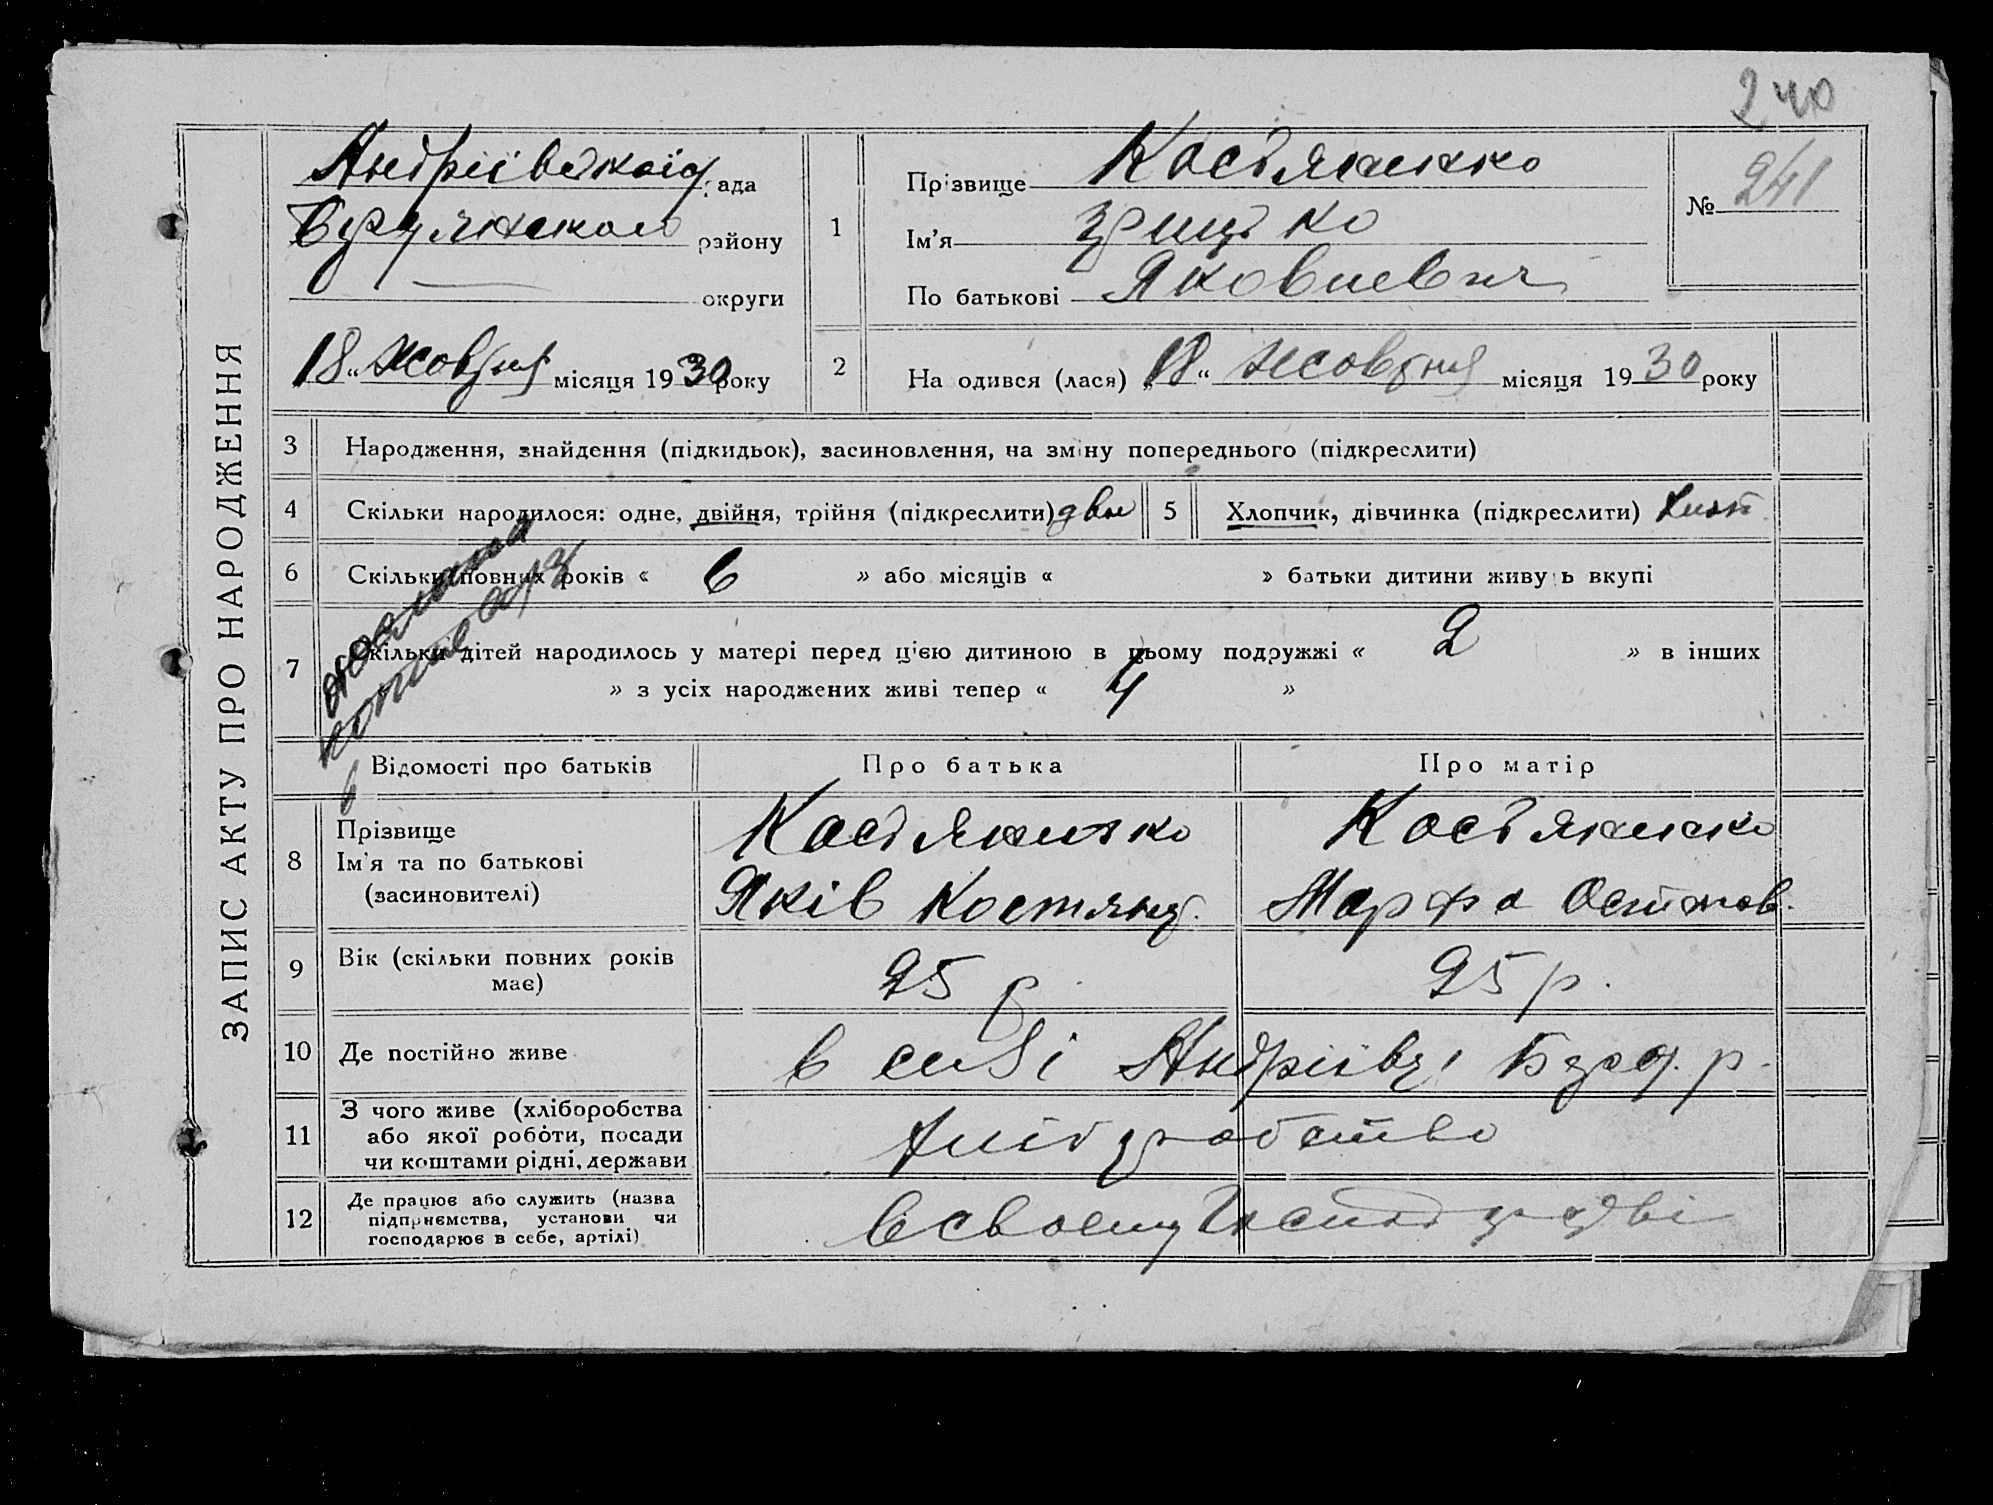 240
ЗАПИС АКТУ ПРО НАРОДЖЕННЯ
Андріївської рада
району
округи
18 „ жовтня місяця 1930 року
1
Прізвище Костяненко
Ім'я Грицько
По батькові Яковлевич
№ 241
2
На одився (лася) „ 18 “ жовтня місяця 19 30 року
3 Народження, знайдення (підкидьок), засиновлення, на зміну попереднього (підкреслити)
4 Скільки народилося: одне, двійня, трійня (підкреслити) двы 5 Хлопчик, дівчинка (підкреслити)
6 Скільки повних років « 6 » або місяців « » батьки дитини живуть вкупі
7 Скільки дітей народилось у матері перед цією дитиною в цьому подружжі « 2 » в інших
» з усіх народжених живі тепер « 4 »
Відомості про батьків Про батька Про матір
8 Прізвище
Ім'я та по батькові
(засиновителі)
Костяненко
Яків Костянт.
Костяненко
Марфа Остапов.
9 Вік (скільки повних років
має)
25 р. 25 р.
10 Де постійно живе в селі Андріївці
11 З чого живе (хліборобства
або якої роботи, посади
чи коштами рідні, держави
Хліборобство
12 Де працює або служить (назва
підприємства, установи чи
господарює в себе, артілі)
В своему Господарстві